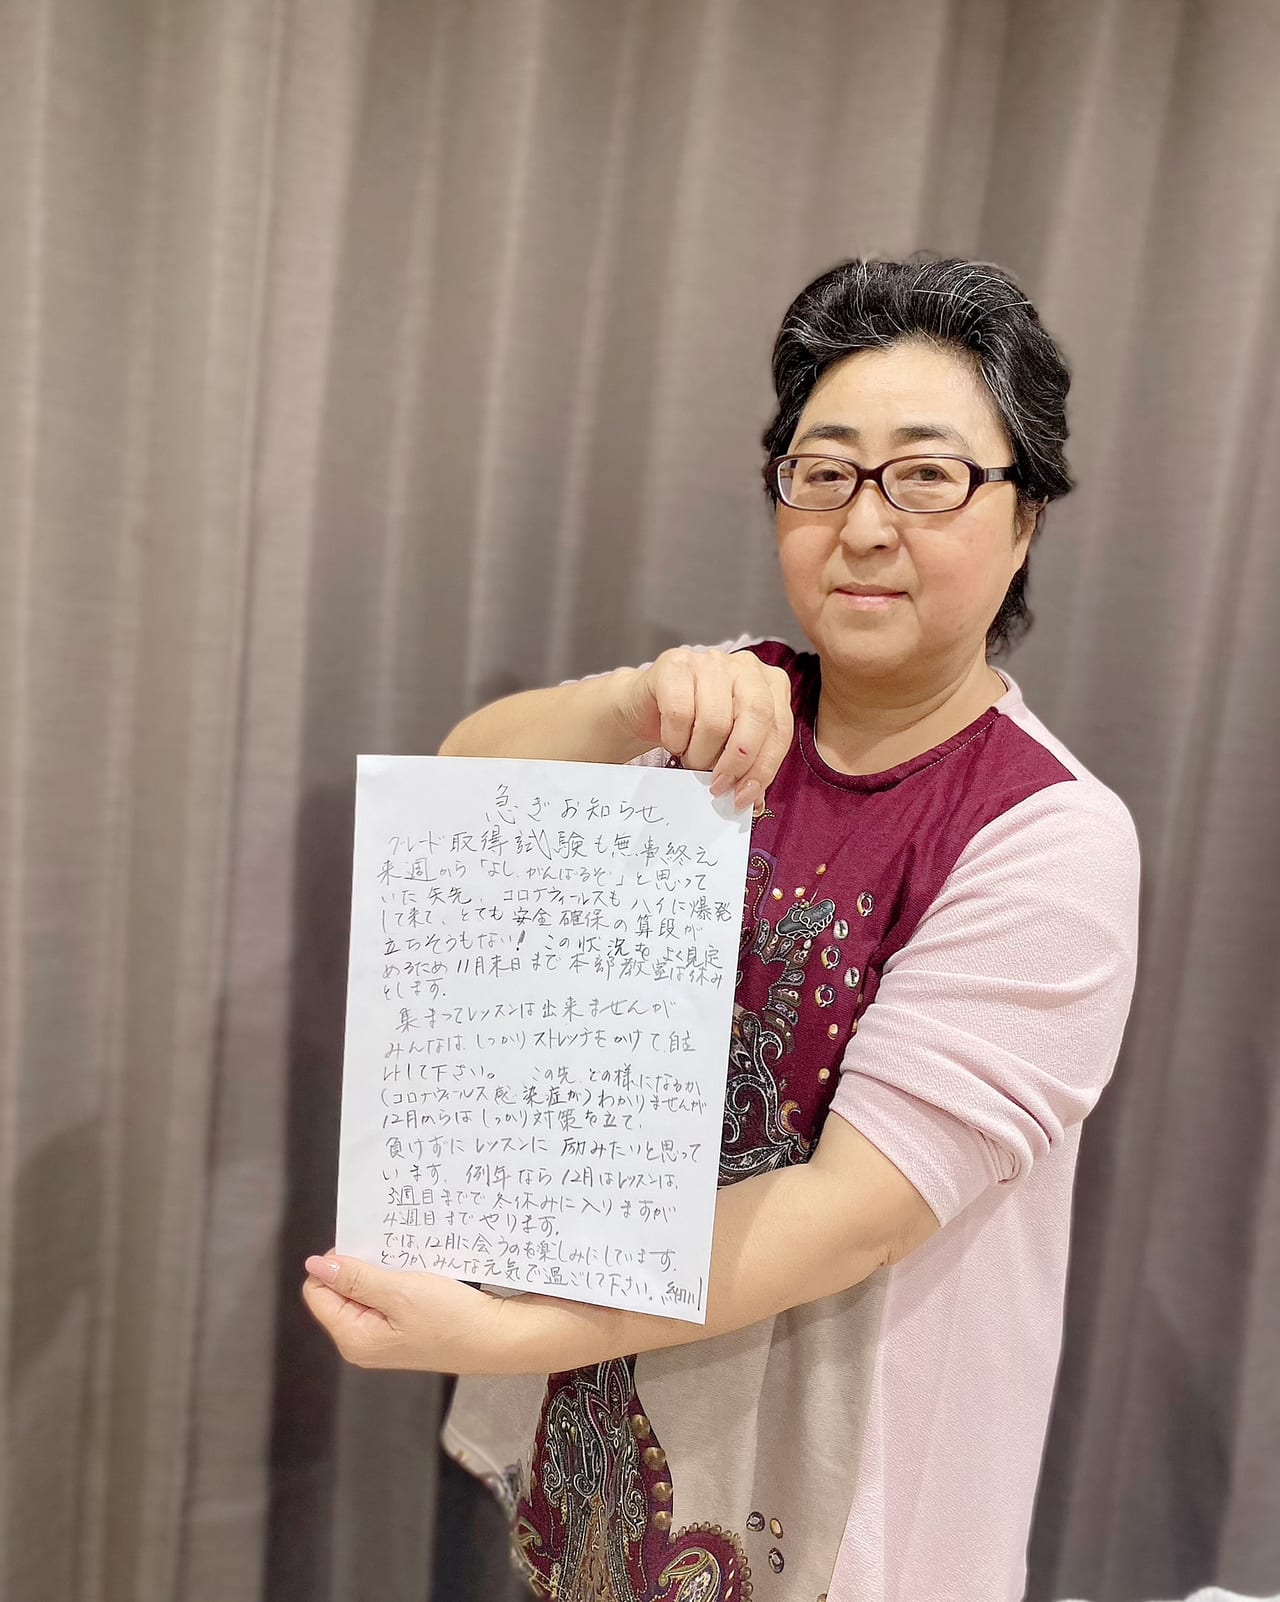 急ぎお知らせ、
グレード取得試験も無事終え
来週から「よし、がんばるぞ」と思って
いた矢先、コロナウィールスもハイに爆発
して来て、とても安全確保の算段が
立ちそうもない!この状況をよく見定
めるため11月末日まで本部教室は休み
とします。
集まってレッスンは出来ませんが
みんなは、しっかりストレッチをかけて、自主
トして下さい。この先、どの様になるか
(コロナウィールス感染症が)わかりませんが
12月からはしっかり対策を立て、
負けずにレッスンに励みたいと思って
います。例年なら12月はレッスンは、
3週目までで冬休みに入りますが
4週目までやります。
では、12月に会うのを楽しみにしています。
どうかみんな元気で過ごして下さい。細川